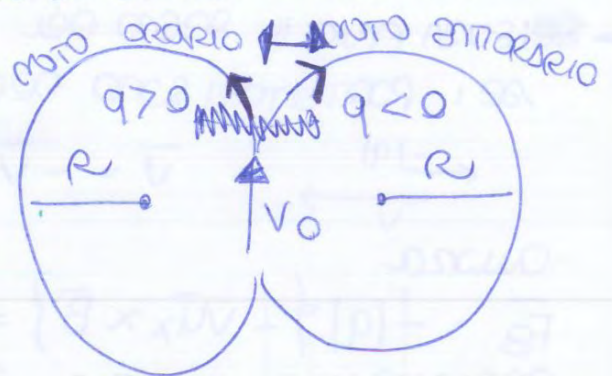 MOTO ORARIO MOTO ANTIORARIO
q>0 q<0
R R
V0